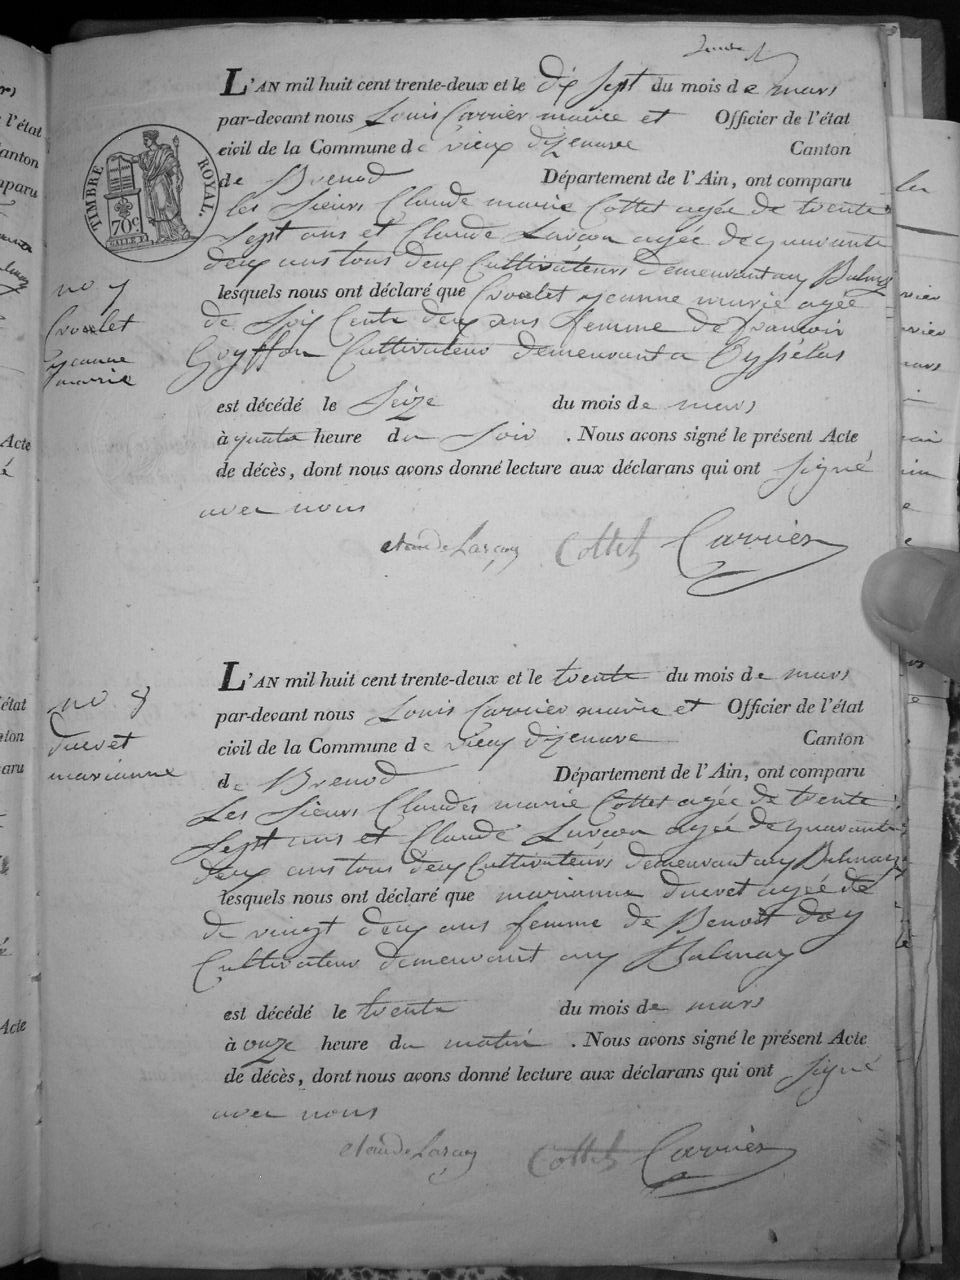 L'AN mil huit cent trente-deux et le dix sept du mois de mars
par-devant nous Louis Carrier maire et Officier de l'état
civil de la Commune de vieux d'izenave Canton
de Brenod Département de l'Ain, ont comparu
les sieurs Claude marie Cottet agée de trente
sept ans et Claude Larçon agée de quarante
deux ans tous deux Cultivateurs demeurant au Balmay
lesquels nous ont déclaré que Crovlet jeanne marie agée
de soix[ante] deux ans femme de francois
Goyffon Cultivateur demeurant a Oysselas
est décédé le seize du mois de mars
à quatre heure du soir . Nous avons signé le présent Acte
de décès, dont nous avons donné lecture aux déclarans qui ont signé
avec nous
claude Larçon Cottet Carrier
TIMBRE ROYAL.
70c
no 7
Crovlet
jeanne
marie
L'AN mil huit cent trente-deux et le trente du mois de mars
par-devant nous Louis Carrier maire et Officier de l'état
civil de la Commune de vieux d'izenave Canton
de Brenod Département de l'Ain, ont comparu
Les sieurs Claudes marie Cottet agée de trente
sept ans et Claude Larçon agée de quarante
deux ans tous deux Cultivateurs demeurant au Balmay
lesquels nous ont déclaré que marianne ducret agée de
de vingt deux ans femme de Benoit
Cultivateur demeurant au Balmay
est décédé le trente du mois de mars
à onze heure du matin . Nous avons signé le présent Acte
de décès, dont nous avons donné lecture aux déclarans qui ont signé
avec nous
claude Larçon Cottet Carrier
no 8
ducret
marianne